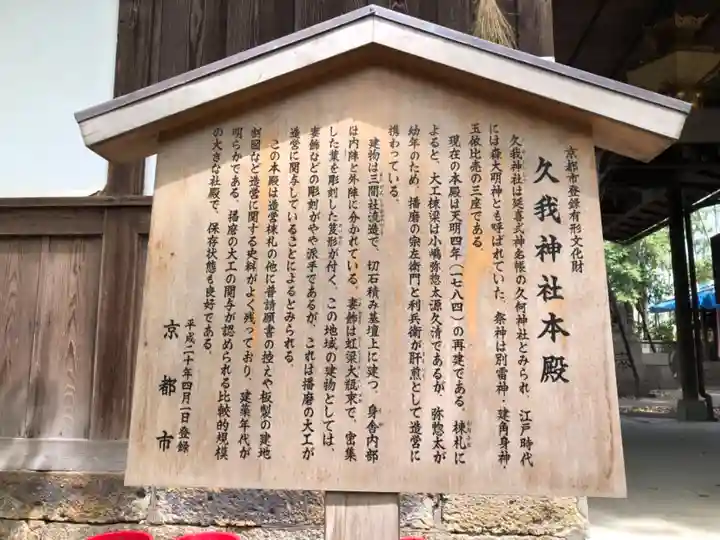 京都市登録有形文化財
久我神社本殿
久我神社は延喜式神名帳の久何神社とみられ、江戸時代
には森大明神とも呼ばれていた。祭神は別雷神・建角身神・
玉依比売の三座である。
現在の本殿は天明四年（一七八四）の再建である。棟札に
よると、大工棟梁は小嶋弥惣太源久清であるが、弥惣太が
幼年のため、播磨の宗左衛門と利兵衛が肝煎として造営に
携わっている。
建物は三間社流造で、切石積み基壇上に建つ。身舎内部
は内陣と外陣に分かれている。妻飾は虹梁大瓶束で、密集
した葉を彫刻した笈形が付く。この地域の建物としては、
妻飾などの彫刻がやや派手であるが、これは播磨の大工が
造営に関与していることによるとみられる。
この本殿は造営棟札の他に普請願書の控えや板製の建地
割図など造営に関する史料がよく残っており、建築年代が
明らかである。播磨の大工の関与が認められる比較的規模
の大きな社殿で、保存状態も良好である。
平成二十年四月一日登録
京都市